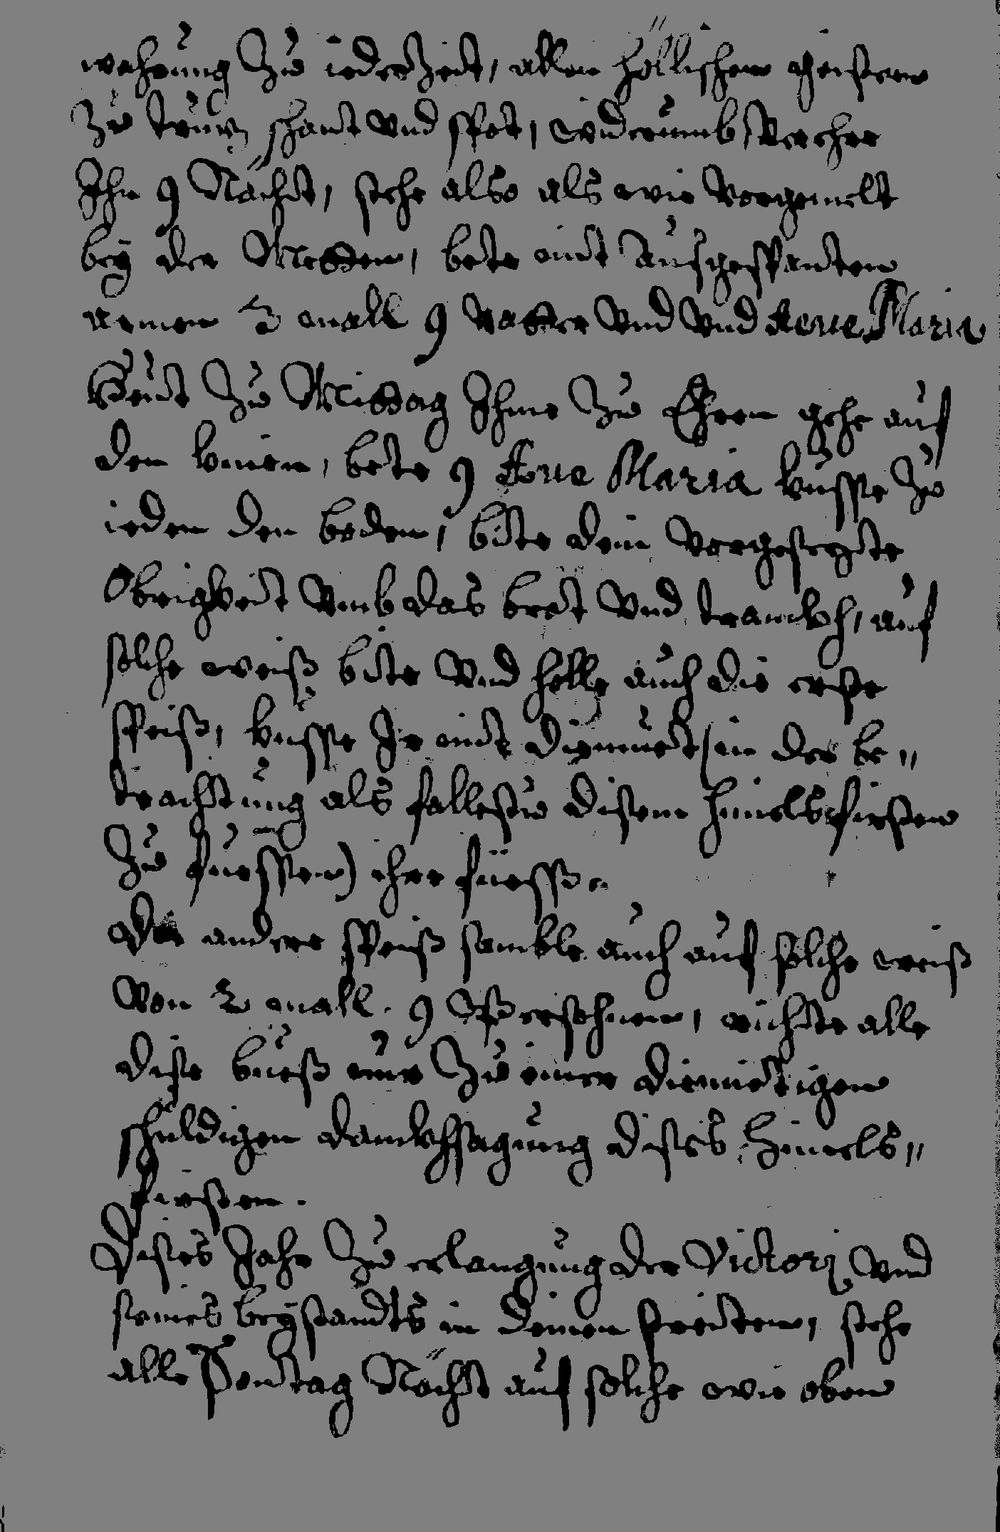 wahrung Zu ieder Zeit, allen höllischen geistern
Zu truz schant vnd spot, widerumb Verehre
Ihn 9 Nächt, stehe also als wie Vorgemelt
bey der Metten, bete mit ausgespanten
armen 3 mall 9 vatter vnd vnd Aeue Maria
Heut Zu Mittag Ihme Zu Ehren gehe auf
den knien, bete 9 Aue Maria kusse Zu
ieden den boden, bite dein Vorgesezte
Obrigkeit vmb das brot vnd tranckh, auf
solche weiß bite vnd holle auch die erste
speiß, kusse Ir mit diemuet (in der be„
trachtung als fallestu disem himelsfirsten
Zu fuessen) ihre füesse.
die andere speiß samble auch auf solche weiß
von 2 mall. 9 Persohnen, richte alle
dise bueß nur Zu einer diemietigen
schuldigen danckhsagung dises Himels„
firsten.
Dises Jahr Zu erlangung der Victori vnd
seines beystandts in deinen streiten, stehe
alle Sontag Nächt auf solche wie oben